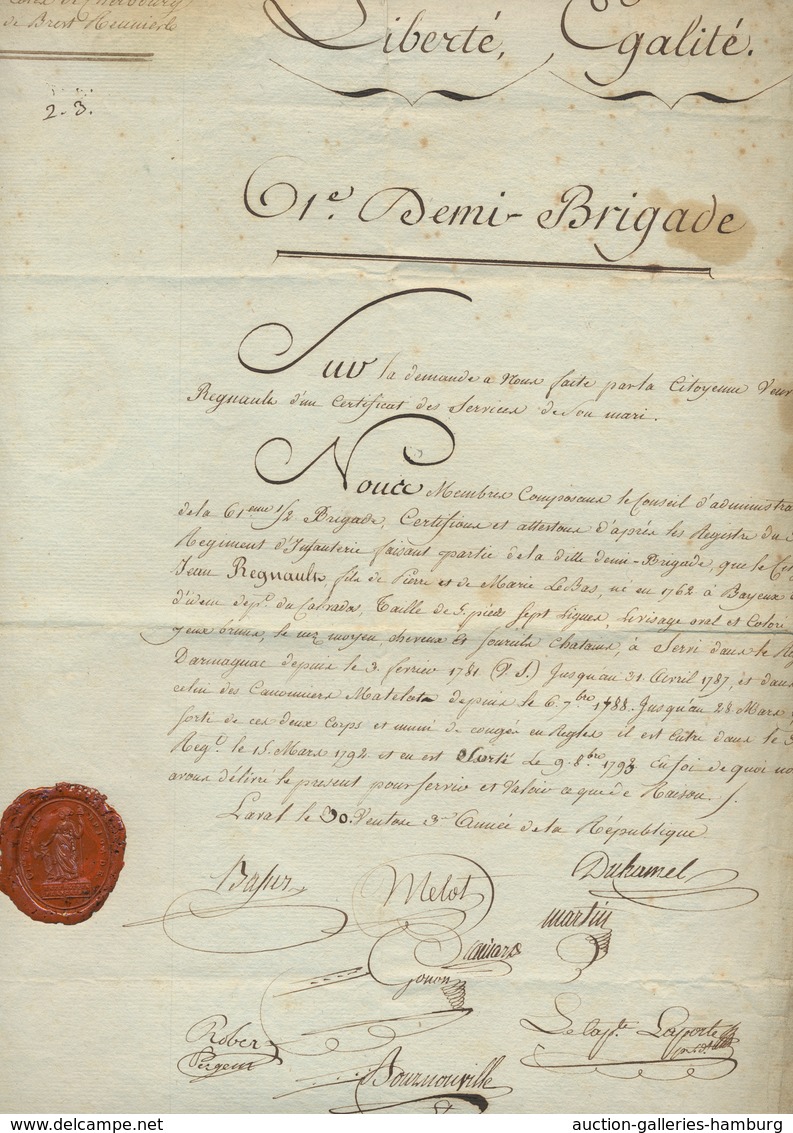 de Brest Réunies
2.3.
Liberté, Egalité.
61e. Demi-Brigade
Sur la demande a Nous faite par la Citoyenne Veuv
Regnault d'un Certificat des Services de Son mari.
Nous Membres Composans le Conseil d'administra
de la 61eme 1/2 Brigade, Certifions et attestons d'après les Registre du
Regiment d'Infanterie faisant partie de la ditte demi-Brigade, que le Cit
Jean Regnault fils de Pierre et de Marie LeBas, né en 1762 à Bayeux
d'idem dept. du Calvados, Taille de 5. pied Sept Lignes, Le visage oval et Coloré
yeux bruns, le nez moyen, cheveux et sourcils chatains, à Servi dans le Reg
Darmagnac depuis le 3. fevrier 1781 (V.S.) Jusqu'au 31. Avril 1787, et dans
celui des Canonniers Matelots depuis le 6. 7bre 1788. Jusqu'au 28 Mars
sorti de ces deux Corps et muni de congés en Regles il est entré dans le
Regt. le 15. Mars 1792 et en est Sorté Le 9. 8bre 1793. En foi de quoi no
avons délivré le présent pour servir et Valoir ce que de Raison.
Laval le 30. Ventose 3me Année de la République.
Melot Duhamel
martin
Gonon
Robert Le Capte. Laporte
Sergent
Bournonville
auction-galleries-hamburg